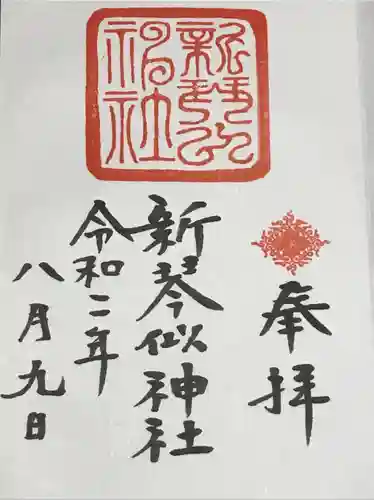 奉拝
新琴似神社
令和二年
八月九日
新琴似
神社